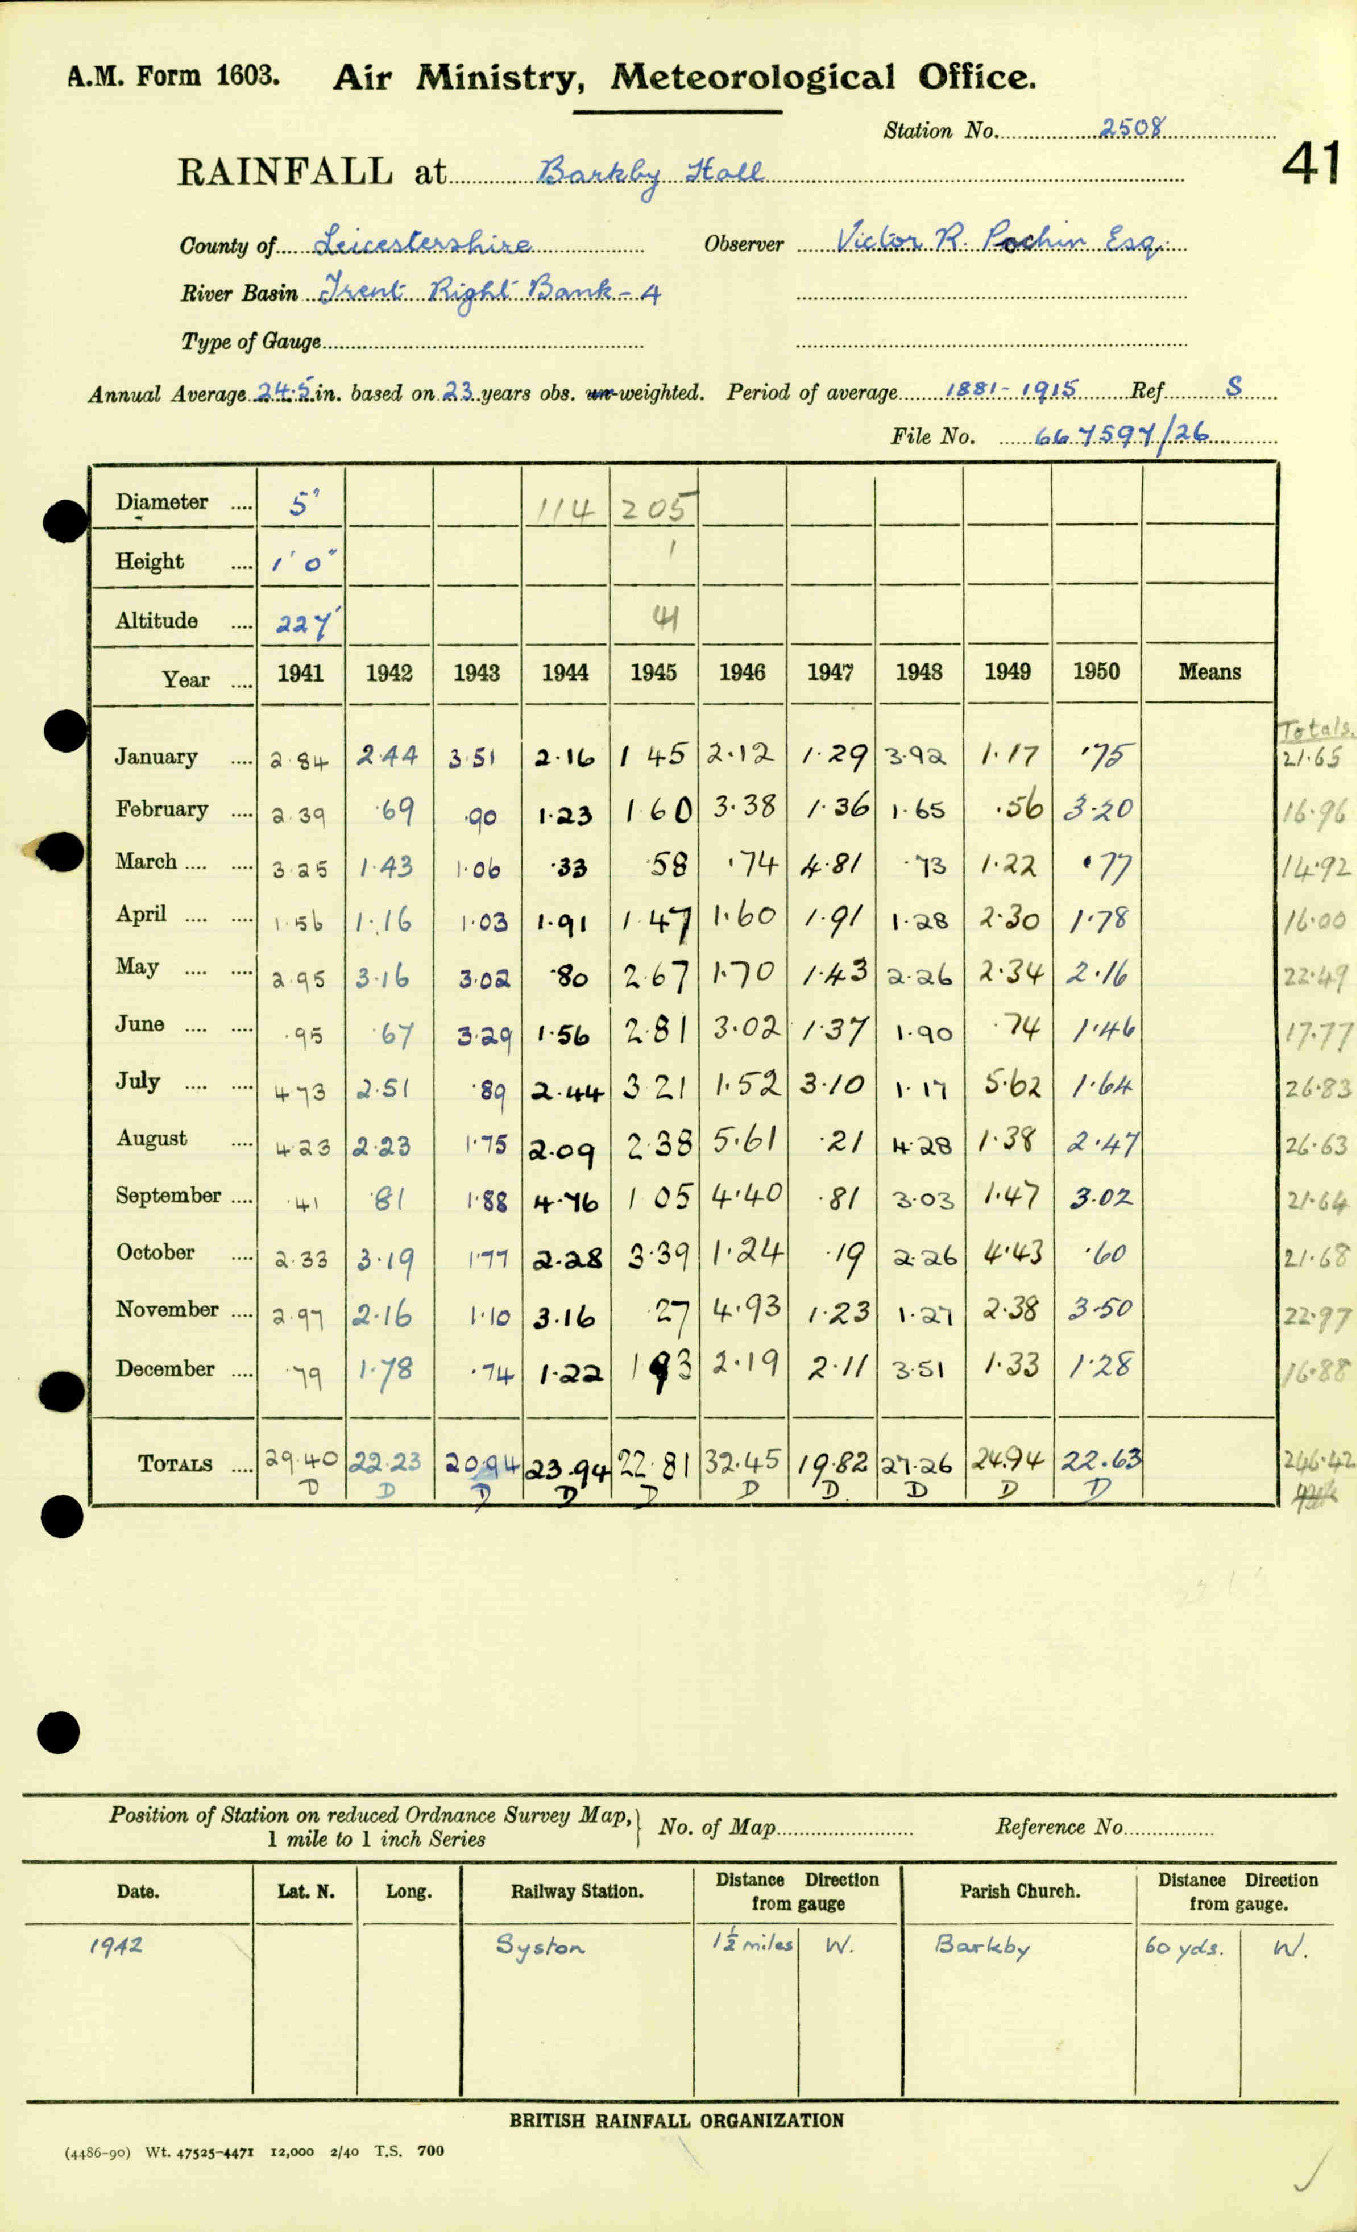 A.M. Form 1603. Air Ministry, Meteorological Office.
Station No. 2508
41
RAINFALL at Barkby Hall
County of Leicestershire Observer Victor R. Pochin Esq.
River Basin Trent Right Bank - 4
Type of Gauge
Annual Average 24.5 in. based on 23 years obs. un-weighted. Period of average 1881-1915 Ref S
File No. 667597/26
Diameter .... 5" 114 205
Height .... 1' 0" 1
Altitude .... 227' 41
Year .... 1941 1942 1943 1944 1945 1946 1947 1948 1949 1950 Means
Totals.
January .... 2.84 2.44 3.51 2.16 1 45 2.12 1.29 3.92 1.17 .75 21.65
February .... 2.39 .69 .90 1.23 1 60 3.38 1.36 1.65 .56 3.20 16.96
March .... .... 3.25 1.43 1.06 .33 .58 .74 4.81 .73 1.22 .77 14.92
April .... .... 1.56 1.16 1.03 1.91 1.47 1.60 1.91 1.28 2.30 1.78 16.00
May .... .... 2.95 3.16 3.02 .80 2.67 1.70 1.43 2.26 2.34 2.16 22.49
June .... .... .95 .67 3.29 1.56 2.81 3.02 1.37 1.90 .74 1.46 17.77
July .... .... 4.73 2.51 .89 2.44 3.21 1.52 3.10 1.17 5.62 1.64 26.83
August .... 4.23 2.23 1.75 2.09 2.38 5.61 .21 4.28 1.38 2.47 26.63
September .... .41 .81 1.88 4.76 1 05 4.40 .81 3.03 1.47 3.02 21.64
October .... 2.33 3.19 1.77 2.28 3.39 1.24 .19 2.26 4.43 .60 21.68
November .... 2.97 2.16 1.10 3.16 .27 4.93 1.23 1.27 2.38 3.50 22.97
December .... .79 1.78 .74 1.22 1 93 2.19 2.11 3.51 1.33 1.28 16.88
TOTALS .... 29.40 22.23 20.94 23.94 22.81 32.45 19.82 27.26 24.94 22.63 246.42
D D D D D D D D D D
Position of Station on reduced Ordnance Survey Map,} No. of Map Reference No
1 mile to 1 inch Series
Date. Lat. N. Long. Railway Station. Distance Direction from gauge Parish Church. Distance Direction from gauge.
1942 Syston 1½ miles W. Barkby 60 yds. W.
BRITISH RAINFALL ORGANIZATION
(4486-90) Wt. 47525-4471 12,000 2/40 T.S. 700